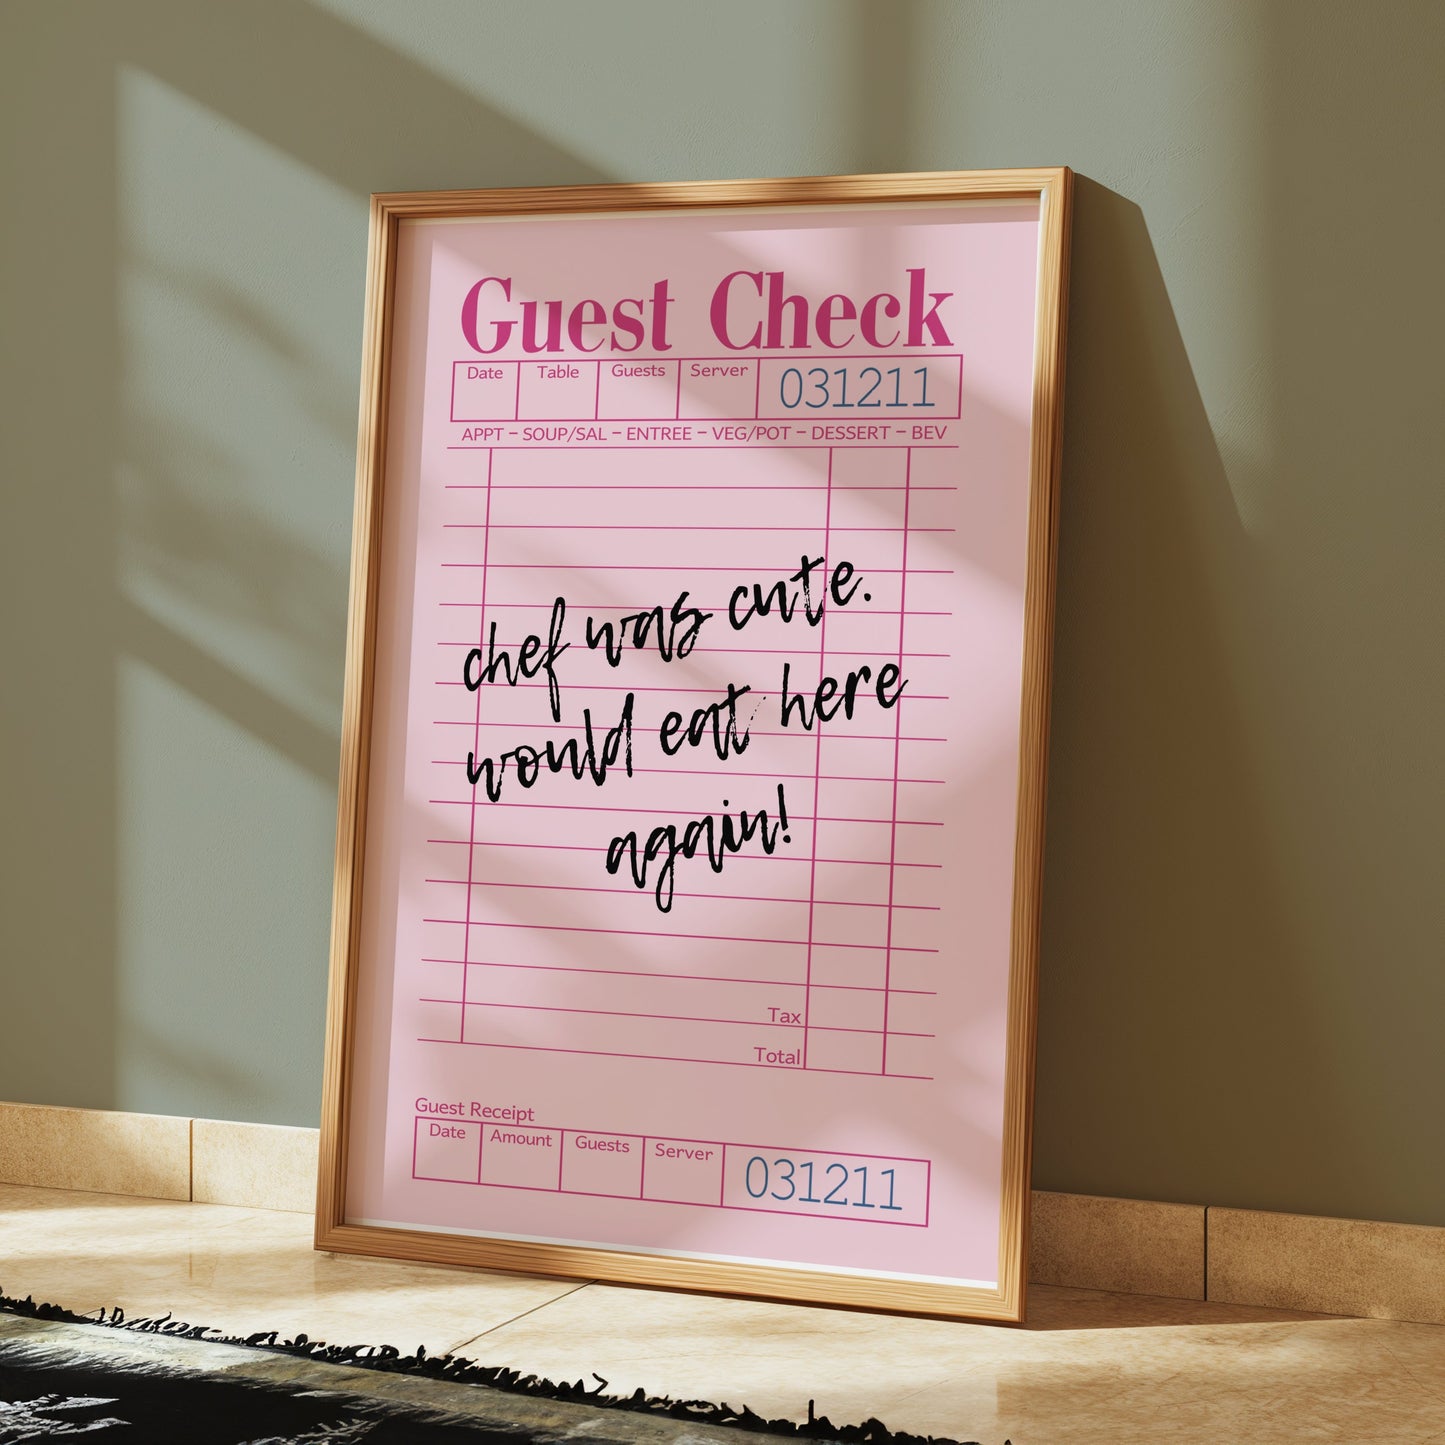 Guest Check
Date Table Guests Server 031211
APPT – SOUP/SAL – ENTREE – VEG/POT – DESSERT – BEV
chef was cute.
would eat here
again!
Tax
Total
Guest Receipt
Date Amount Guests Server 031211